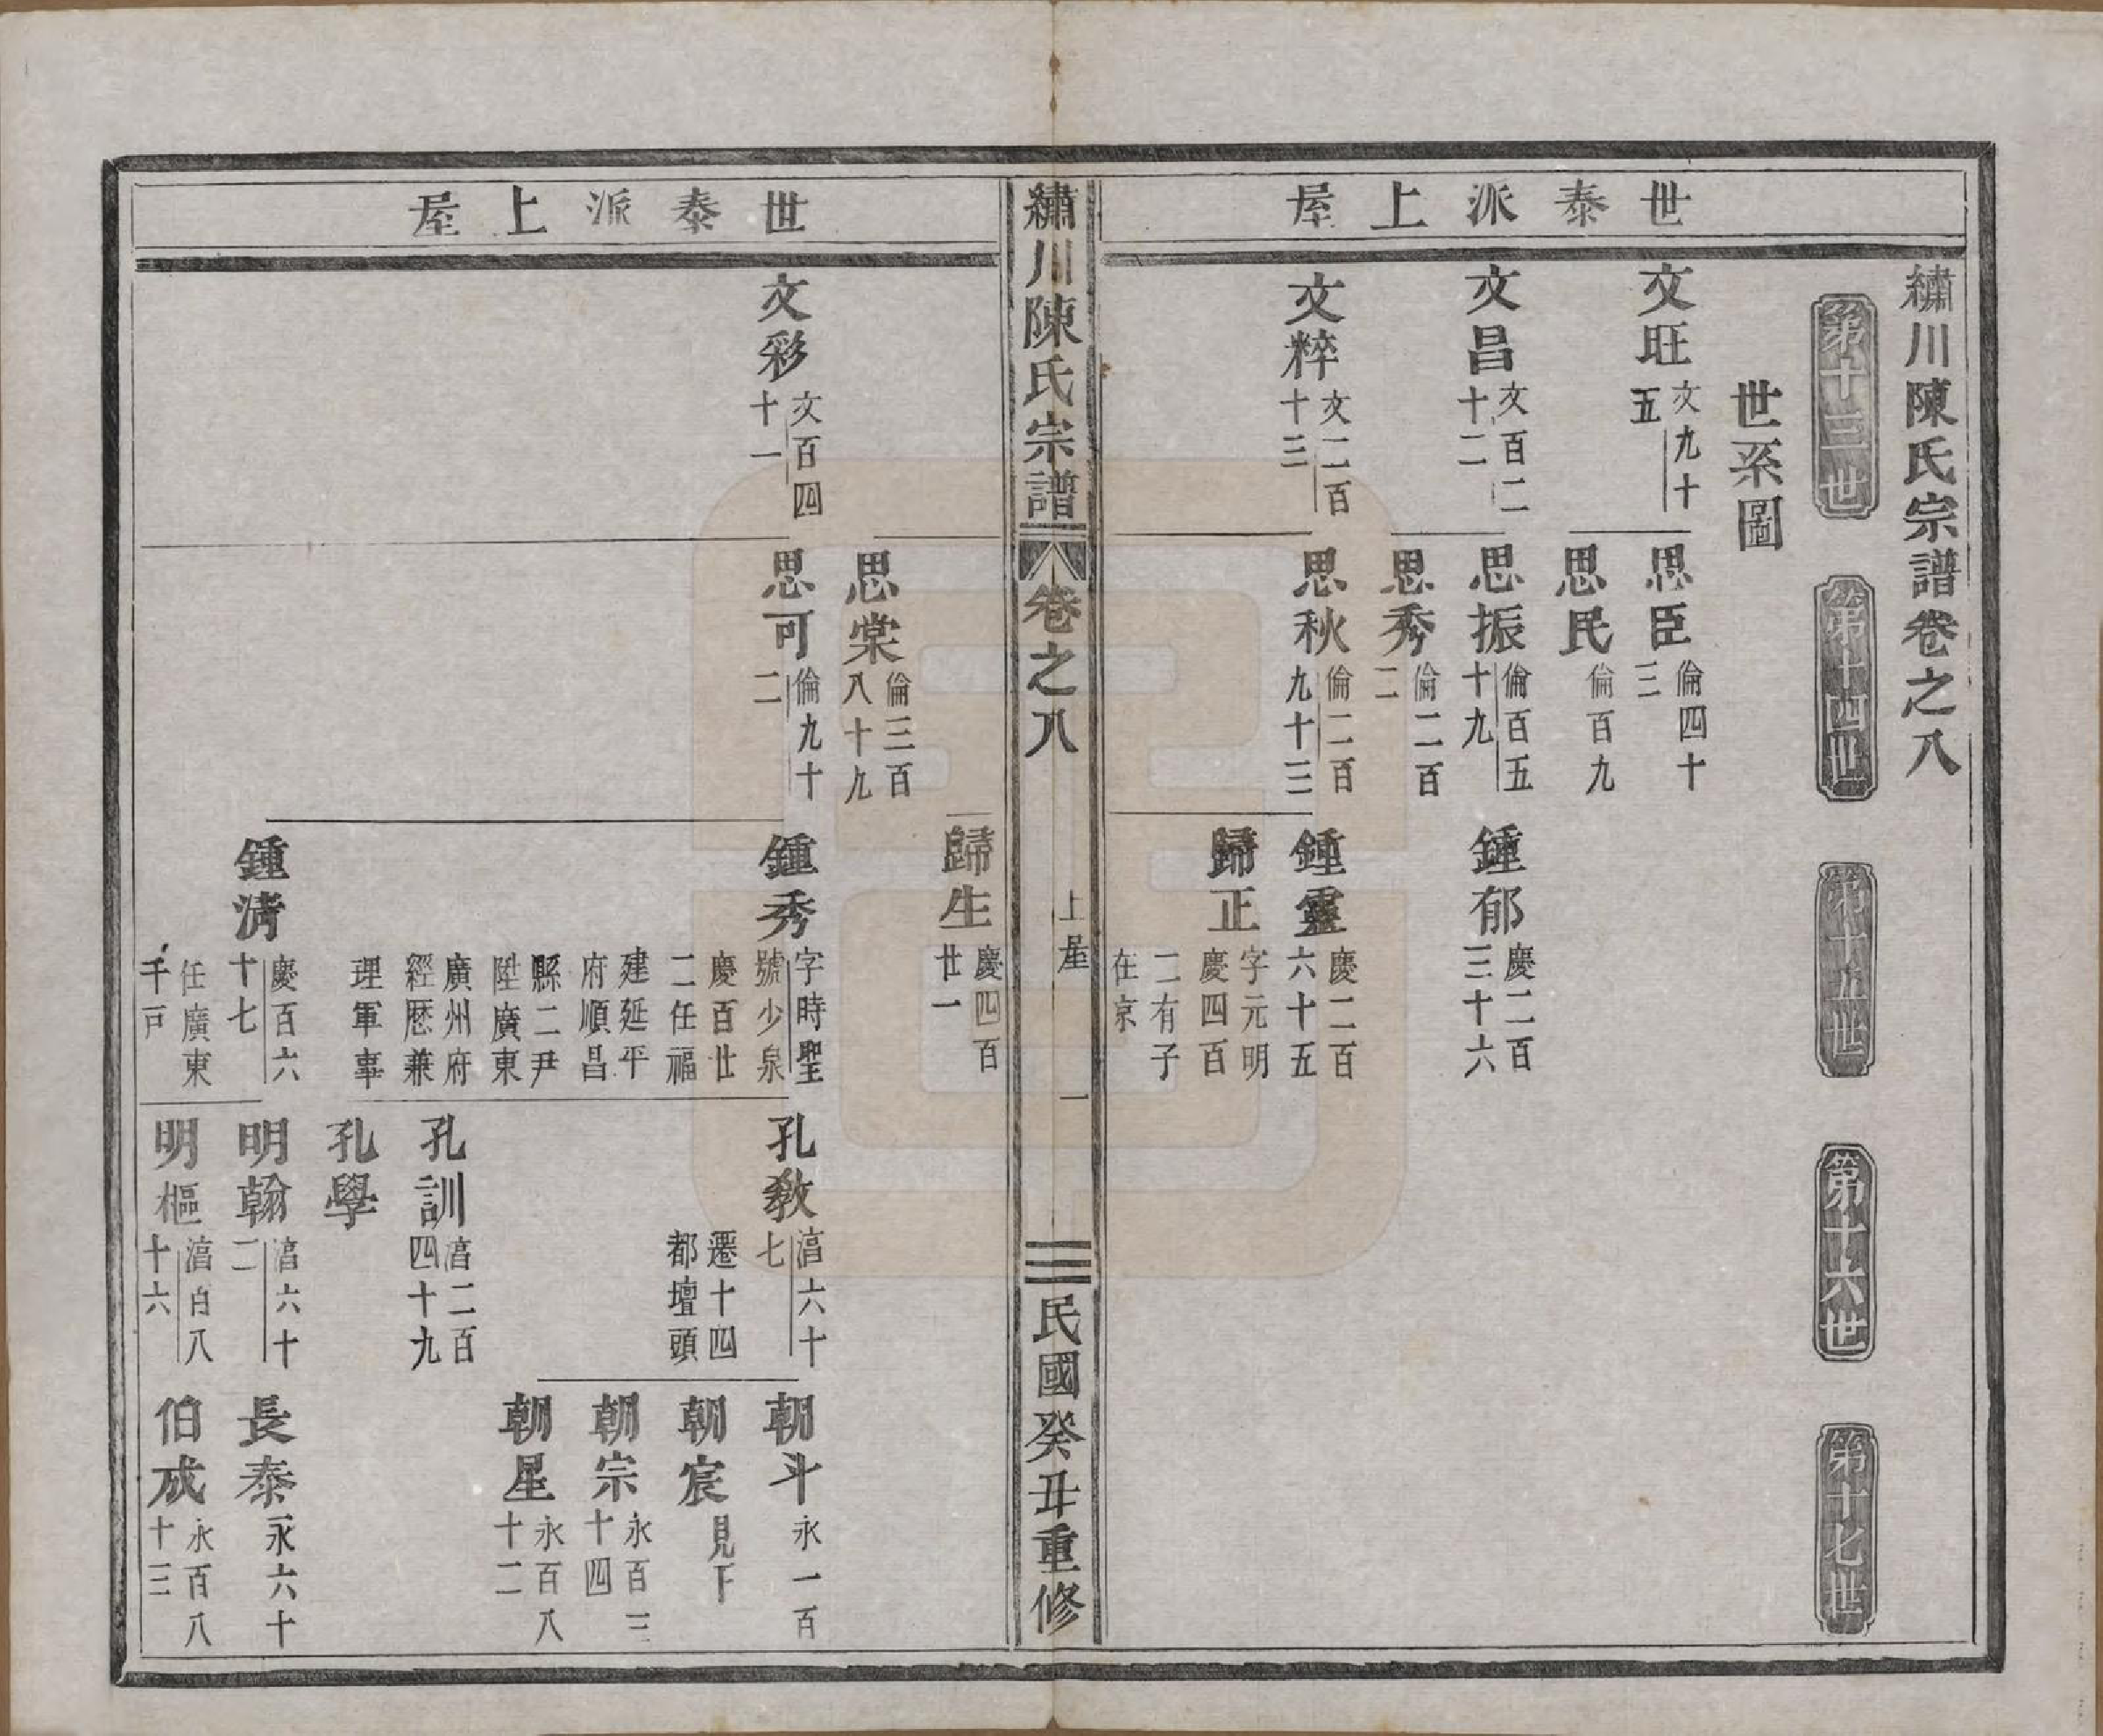 繡川陳氏宗譜卷之八
第十三世
第十四世
第十五世
第十六世
第十七世
世系圖
世泰派上屋
文旺
文九十
五
思臣
倫四十
三
思民
倫百九
文昌
文百二
十二
思振
倫百五
十九
鍾郁
慶二百
三十六
思秀
倫二百
二
文粹
文二百
十三
思秋
倫二百
九十三
鍾靈
慶二百
六十五
歸正
字元明
慶四百
二有子
在京
繡川陳氏宗譜
卷之八
上屋
一
民國癸丑重修
世泰派上屋
歸生
慶四百
廿一
思棠
倫三百
八十九
文彩
文百四
十一
思可
倫九十
二
鍾秀
字時聖
號少泉
慶百廿
二任福
建延平
府順昌
縣二尹
陞廣東
廣州府
經歷兼
理軍事
孔教
㵮六十
七
遷十四
都壇頭
朝斗
永一百
朝宸
見下
朝宗
永百三
十四
朝星
永百八
十二
孔訓
㵮二百
四十九
孔學
鍾清
慶百六
十七
任廣東
千戶
明翰
㵮六十
二
長泰
永六十
明樞
㵮百八
十六
伯成
永百八
十三